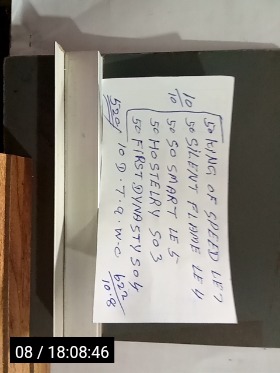 50 KING OF SPEED LE 7
50 SILENT FLAME LE 4
10/10 50 SO SMART LE 5
50 HOSTELRY SO 3
50 FIRST DYNASTY SO 4
520/ 10 D.T.Q.W.C.
08 / 18:08:46